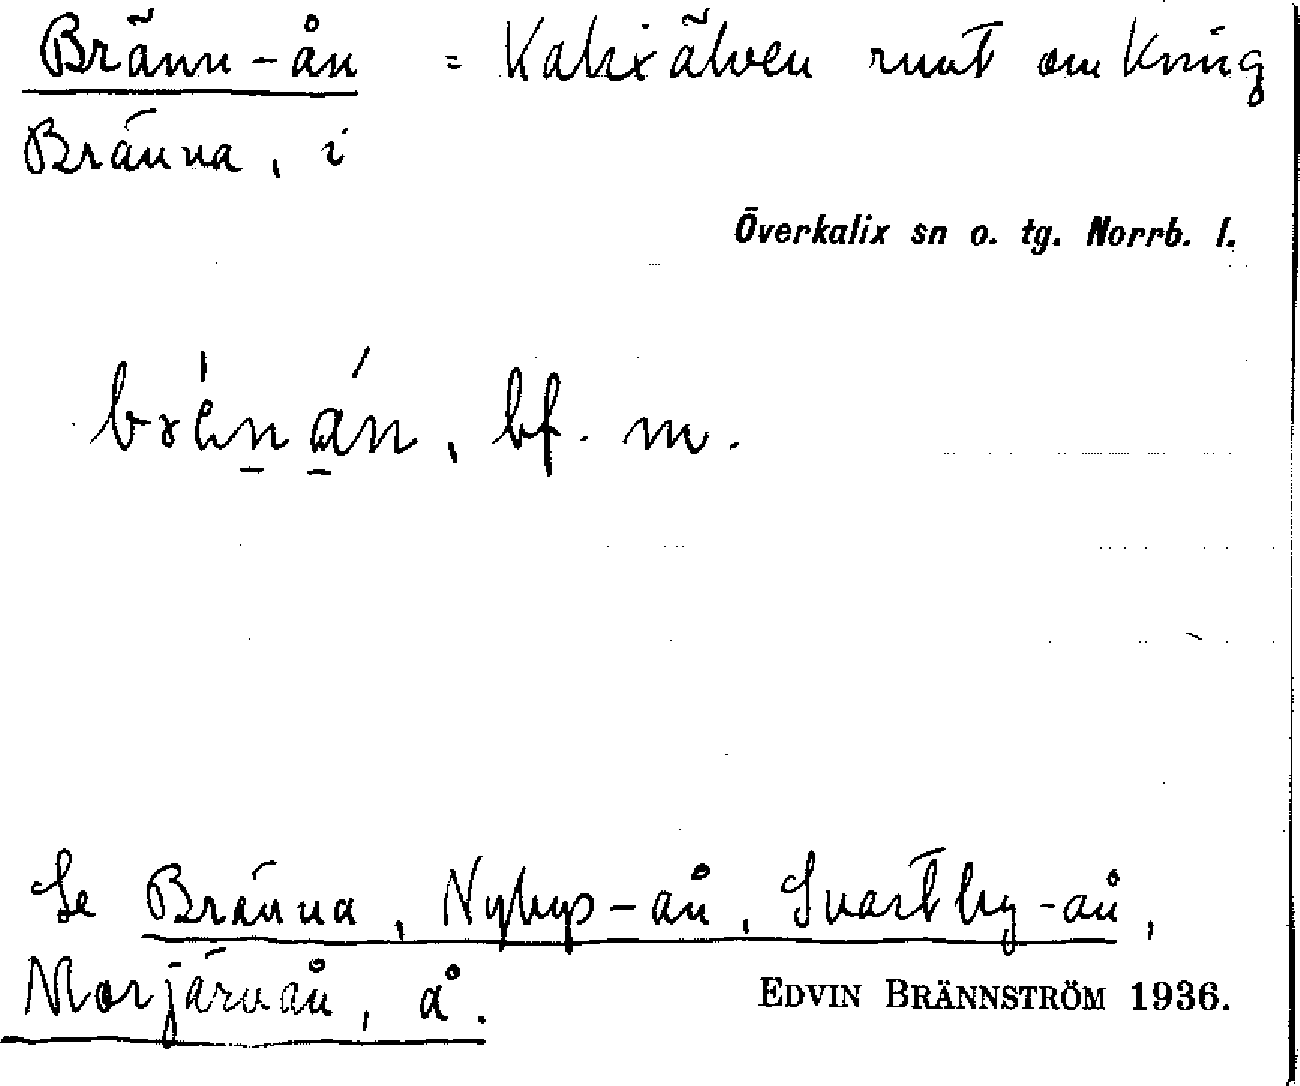 Bränn-ån = Kalixälven runt omkring
Bränna, i
Överkalix sn o. tg. Norrb. l.
bf. m.
Se Bränna, Nybys-ån, Svartby-ån,
Morjärvån, å.
EDVIN BRÄNNSTRÖM 1936.